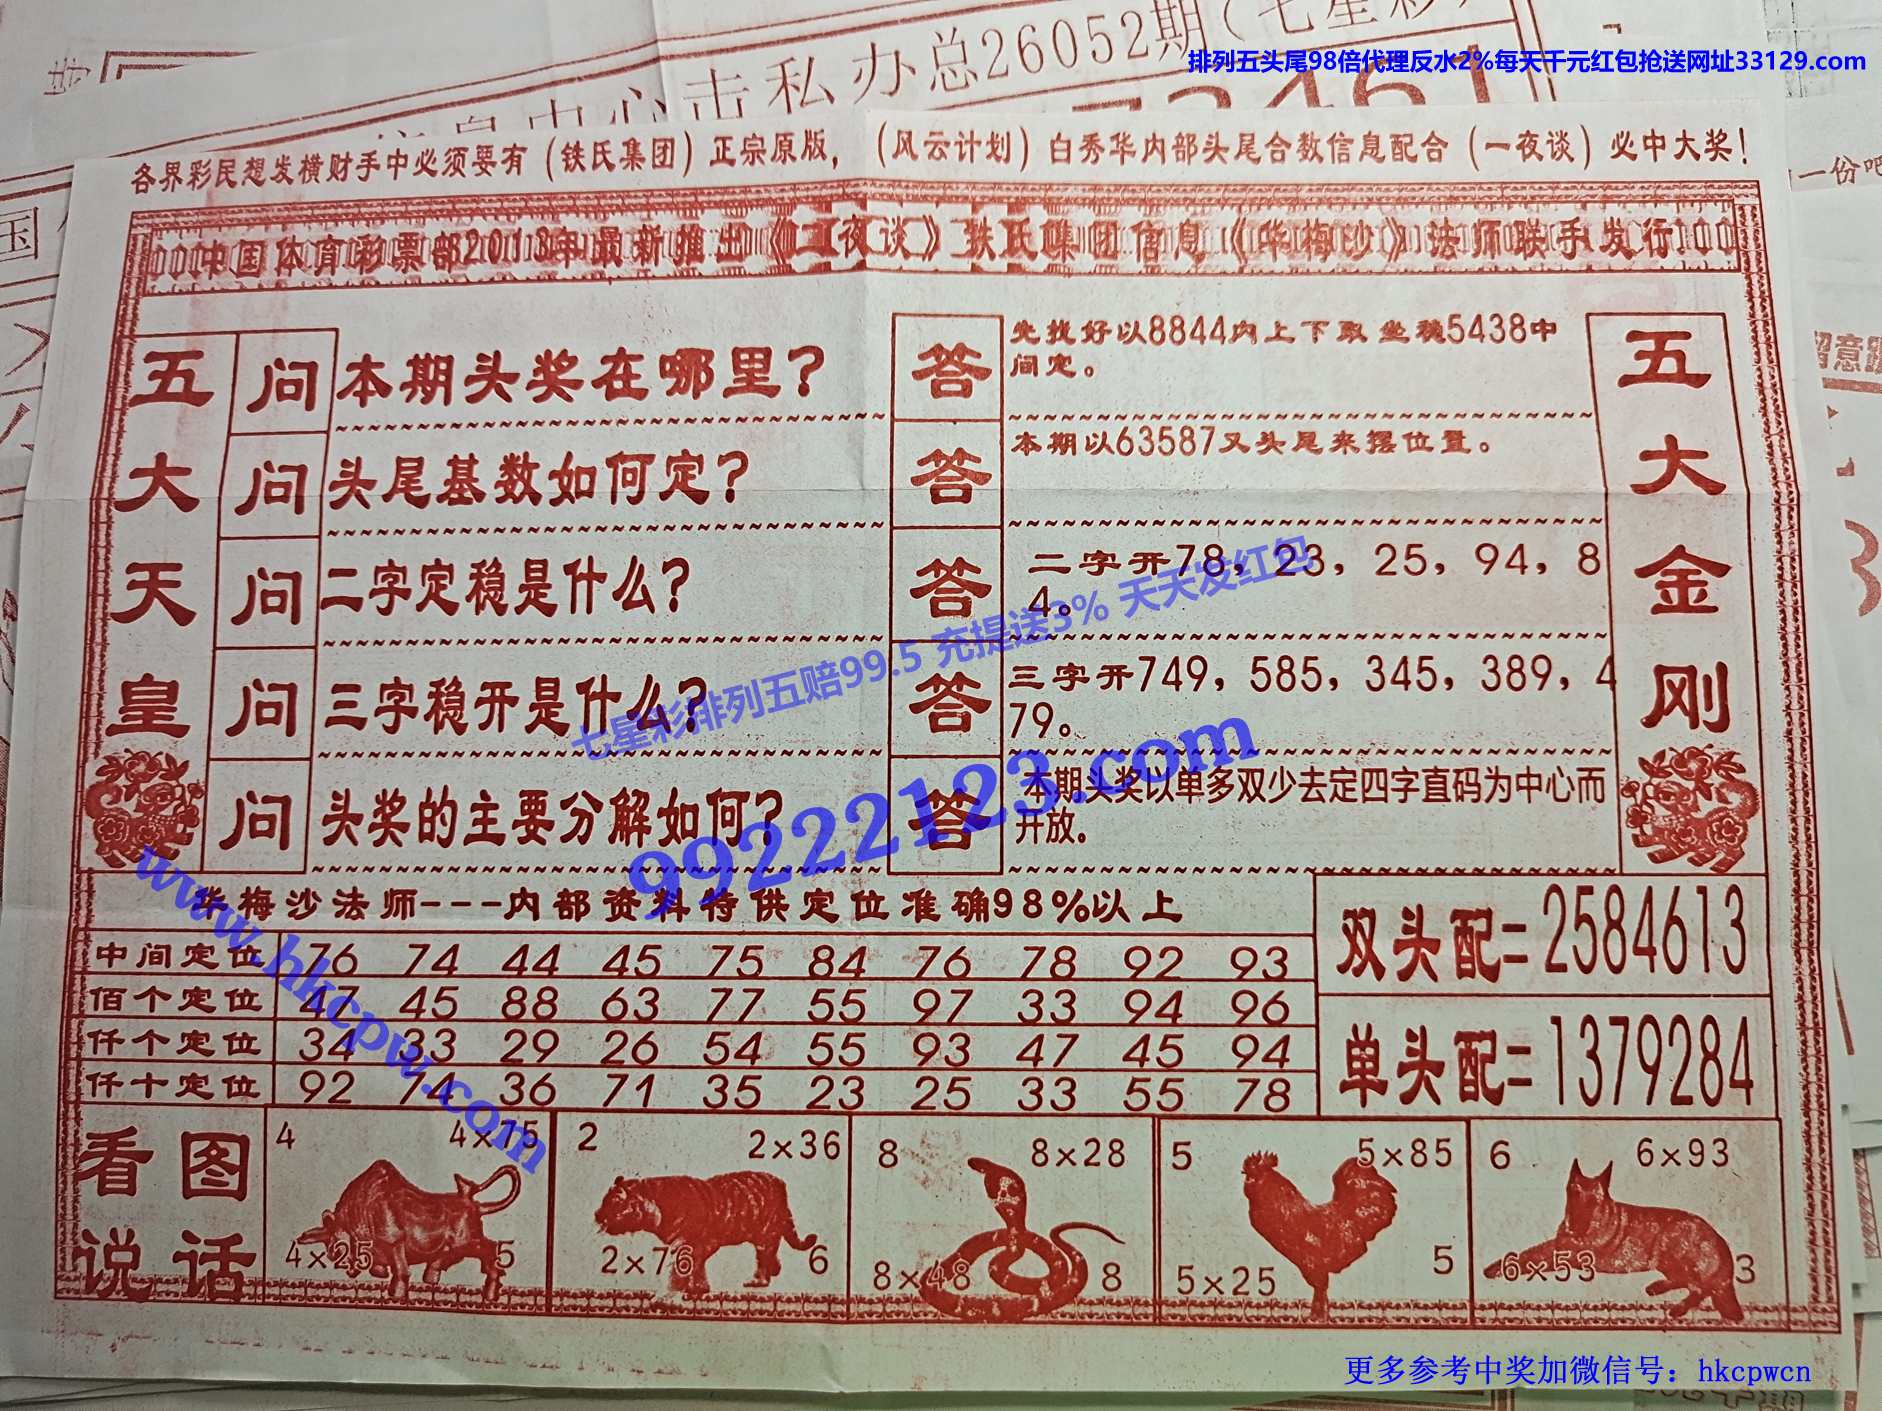 排列五头尾98倍代理反水2%每天千元红包抢送网址33129.com
击私办总26052期(七星彩)
各界彩民想发横财手中必须要有(铁氏集团)正宗原版,(风云计划)白秀华内部头尾合数信息配合(一夜谈)必中大奖!
一份吧
中国体育彩票部2013年最新推出《一夜谈》铁氏集团信息《华梅沙》法师联手发行
留意跟
五大天皇
问 本期头奖在哪里?
答 先找好以8844内上下取坐稳5438中
间定。
问 头尾基数如何定?
答 本期以63587又头尾来摆位置。
问 二字定稳是什么?
答 二字开78,23,25,94,8
4。
问 三字稳开是什么?
答 三字开749,585,345,389,4
79。
问 头奖的主要分解如何?
答 本期头奖以单多双少去定四字直码为中心而
开放。
五大金刚
七星彩排列五赔99.5 充提送3% 天天发红包
99222123.com
www.hkcpw.com
华梅沙法师---内部资料特供定位准确98%以上
中间定位 76 74 44 45 75 84 76 78 92 93
佰个定位 47 45 88 63 77 55 97 33 94 96
仟个定位 34 33 29 26 54 55 93 47 45 94
仟十定位 92 74 36 71 35 23 25 33 55 78
双头配=2584613
单头配=1379284
看图
说话
4 4×15
4×25 5
2 2×36
2×76 6
8 8×28
8×48 8
5 5×85
5×25 5
6 6×93
6×53 3
更多参考中奖加微信号：hkcpwcn